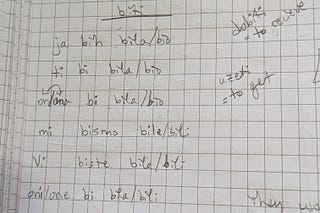 biti
ja bih bila/bio
ti bi bila/bio
on/ona bi bila/bio
mi bismo bile/bili
Vi biste bile/bili
oni/one bi bile/bili
dobiti
= to receive
uzeti
= to get
Then